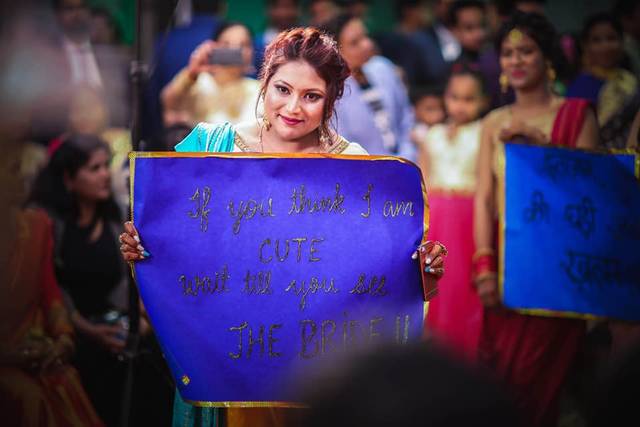 If you think I am
CUTE
wait till you see
THE BRIDE !!
की घड़ी